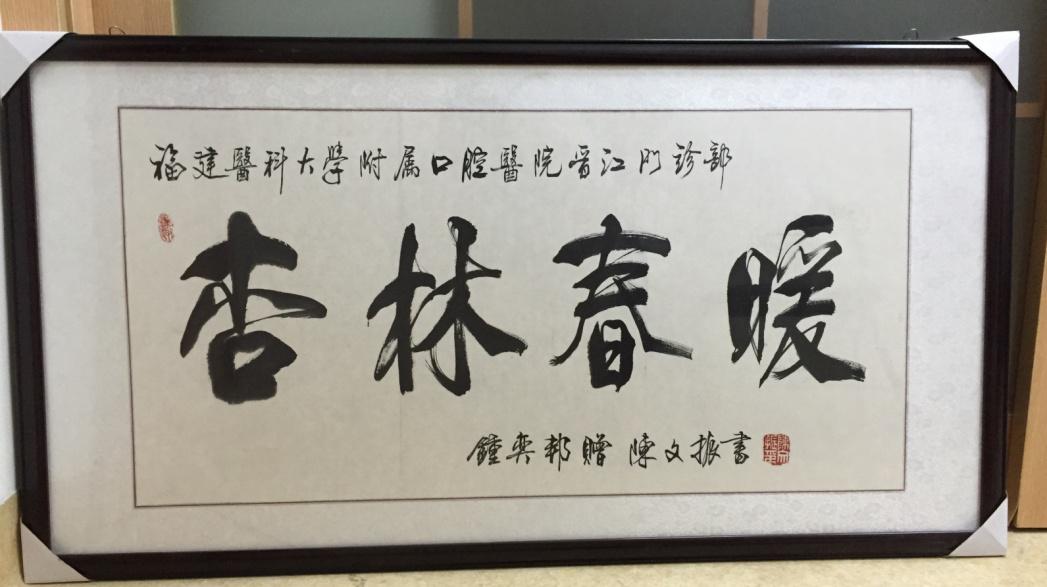 福建醫科大學附属口腔醫院晋江门診部
杏林春暖
鍾奕邦贈 陳文振書